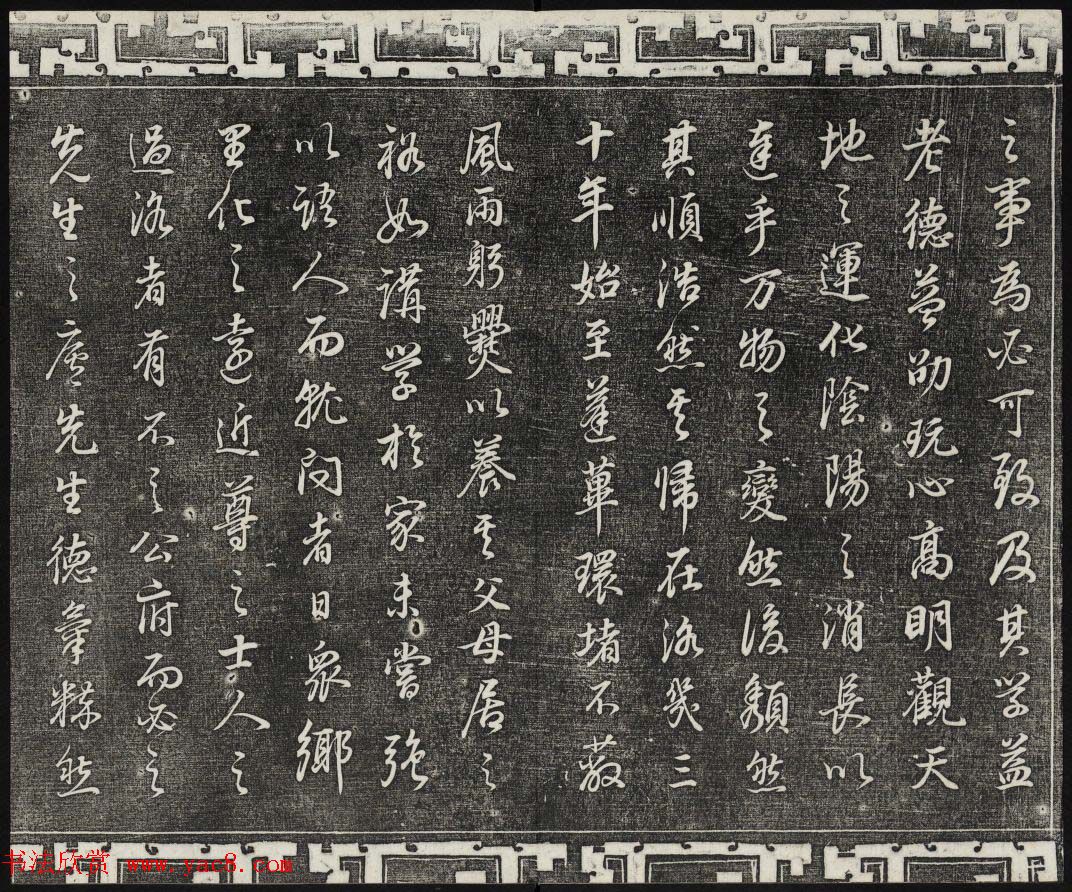 之事為必可致及其学益
老德益劭玩心高明觀天
地之運化陰陽之消長以
達乎万物之變然後頹然
其順浩然其歸在洛幾三
十年始至蓬蓽環堵不蔽
風雨躬爨以養其父母居之
裕如講学於家未嘗強
以語人而就问者日眾鄉
里化之遠近尊之士人之
過洛者有不之公府而必之
先生之廬先生德氣粹然
书法欣赏 www.yac8.com